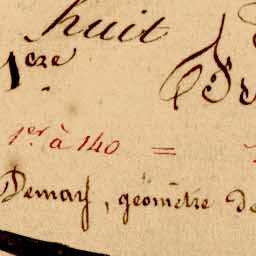 huit
1ere
1er à 140 =
Demary, géomètre de